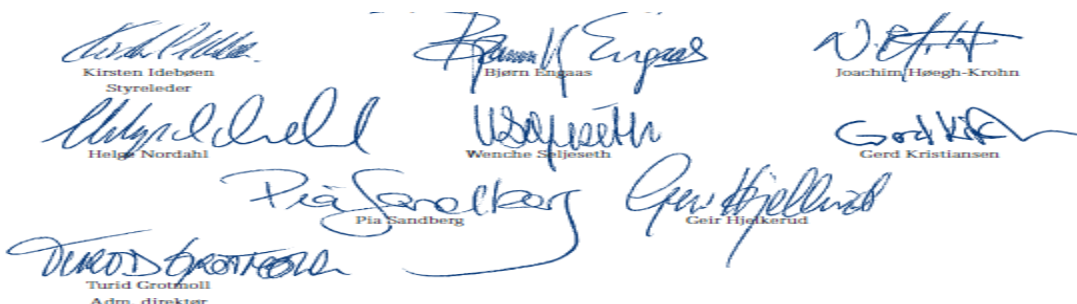 Kirsten Idebøen Bjørn Engaas Joachim Høegh-Krohn
Styreleder
Helge Nordahl Wenche Seljeseth Gerd Kristiansen
Pia Sandberg Geir Hjelkerud
Turid Grotmoll
Adm. direktør